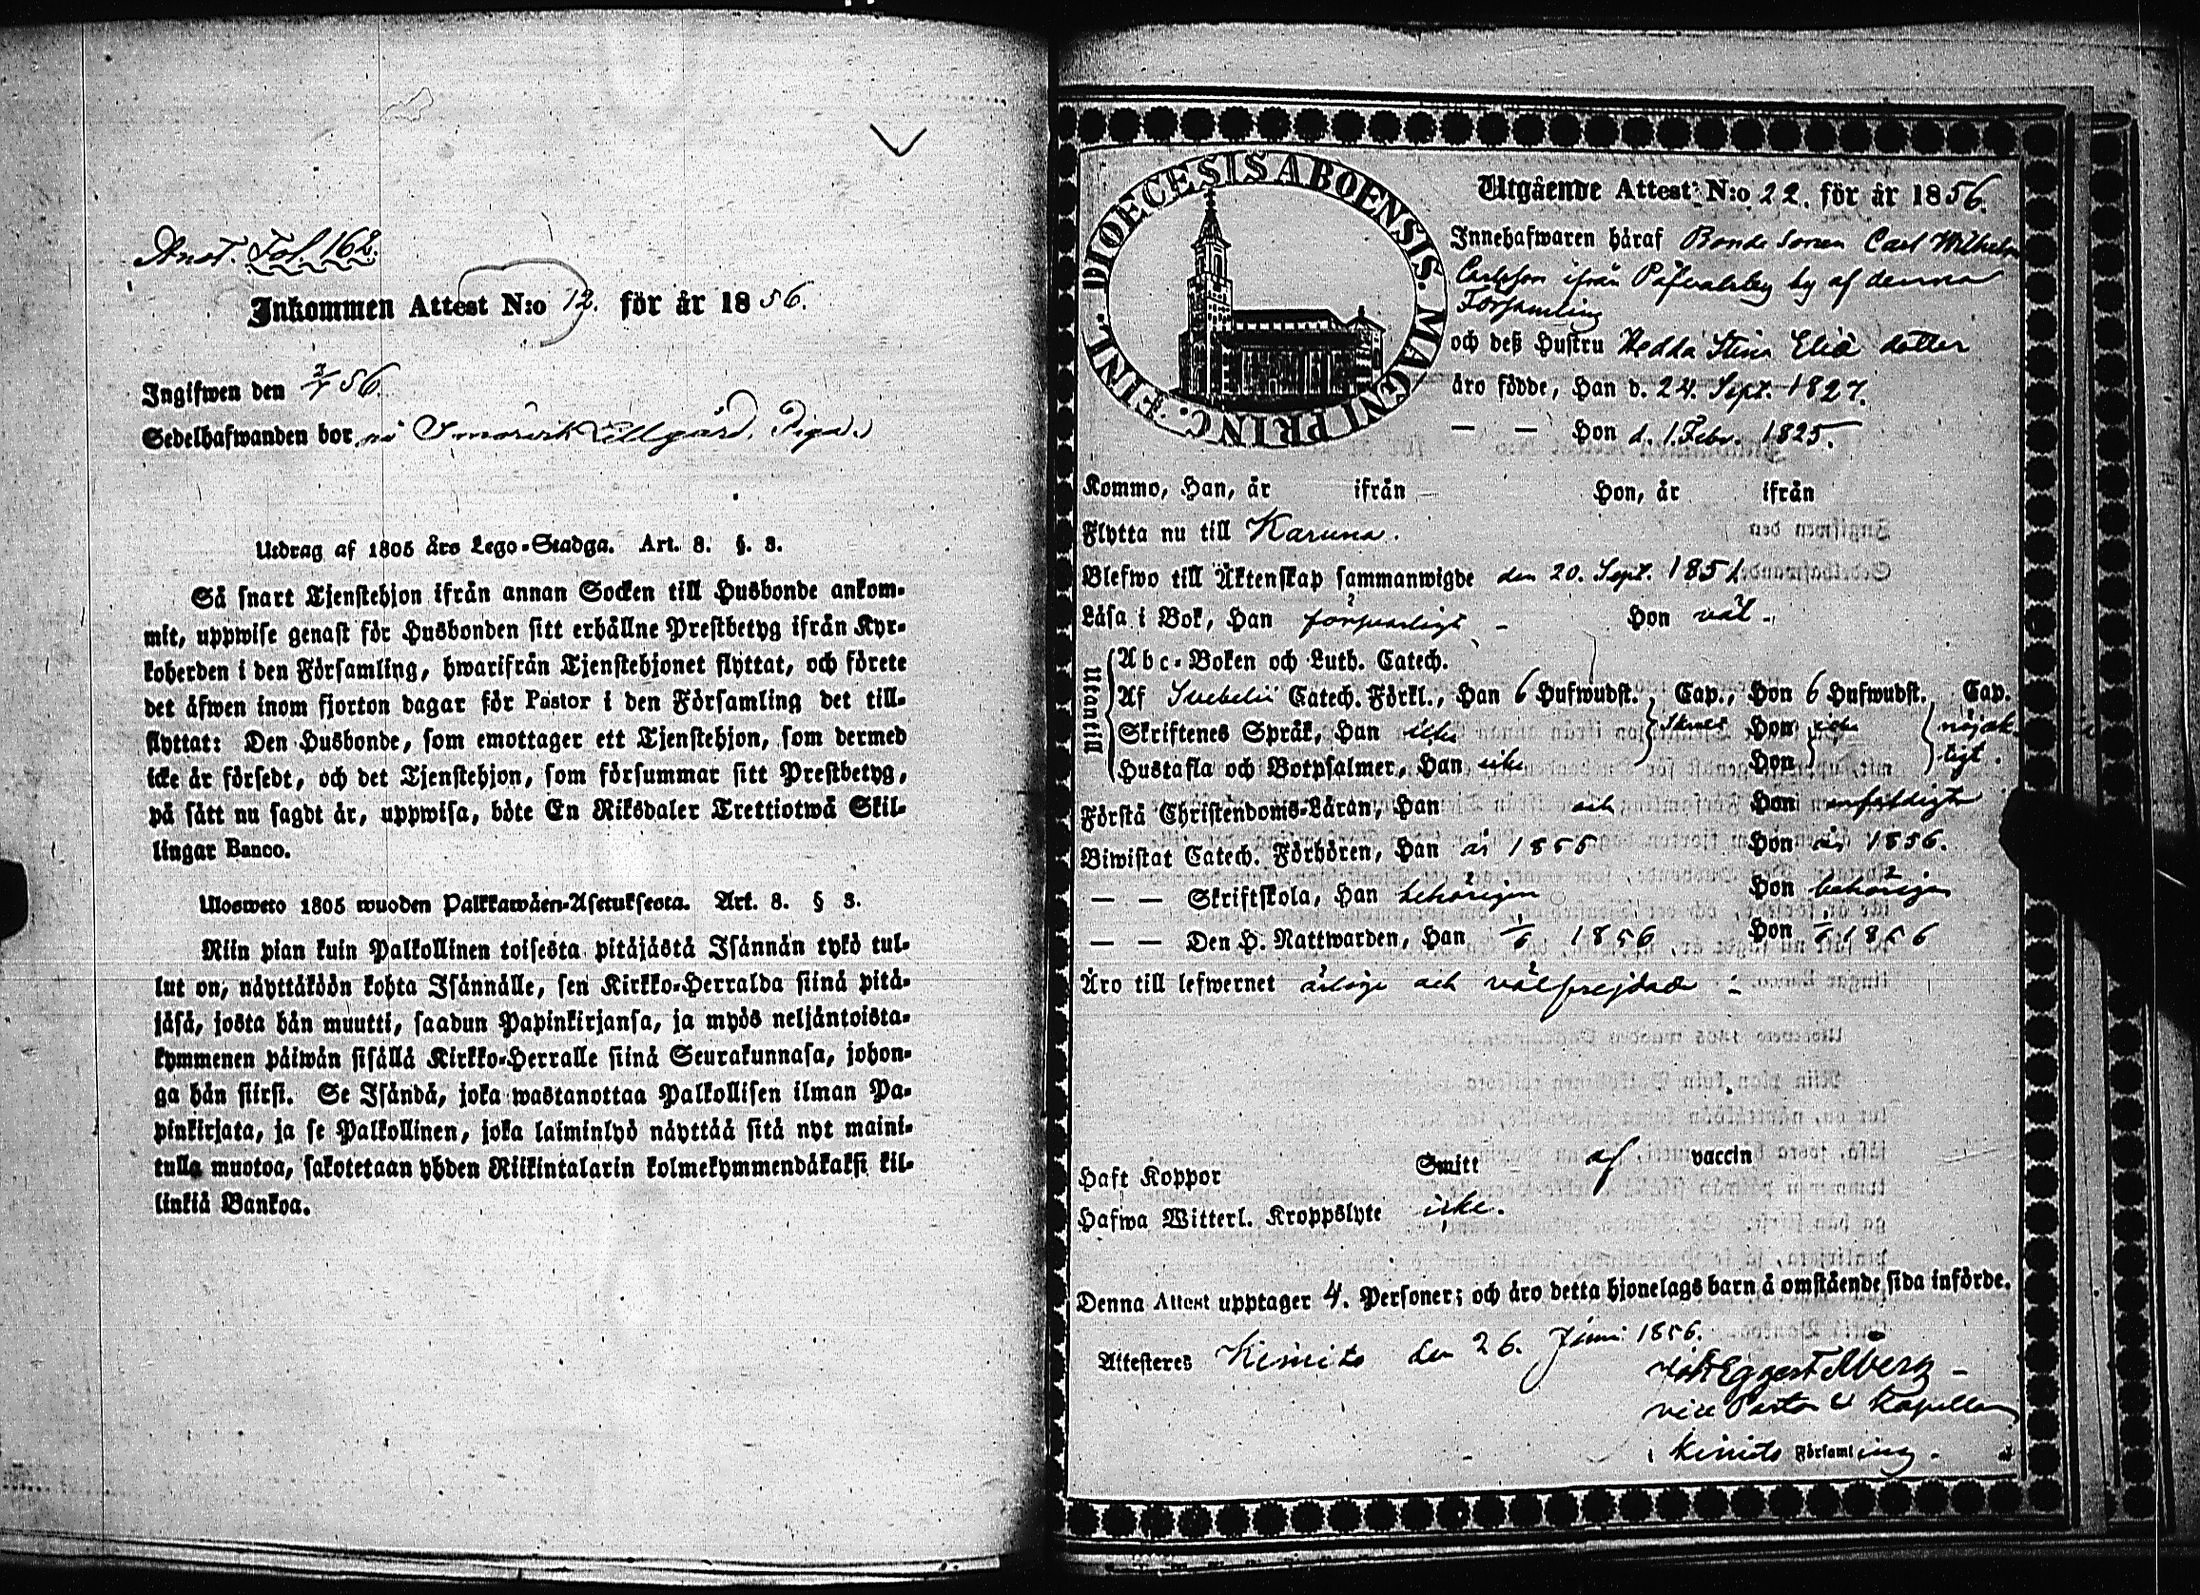 Anot. Fol. 162.
Inkommen Attest N:o 12. för år 1856.
Ingifwen den 2/7 56.
Sedelhafwanden bor på Lillgård. Piga.
Utdrag af 1805 års Lego-Stadga. Art. 8. §. 3.
Så snart Tjenstehjon ifrån annan Socken till Husbonde ankom-
mit, uppwise genast för Husbonden sitt erhållne Prestbetyg ifrån Kyr-
koherden i den Församling, hwarifrån Tjenstehjonet flyttat, och förete
det äfwen inom fjorton dagar för Pastor i den Församling det till-
flyttat: Den Husbonde, som emottager ett Tjenstehjon, som dermed
icke är försedt, och det Tjenstehjon, som försummar sitt Prestbetyg,
på sätt nu sagdt är, uppwisa, böte En Riksdaler Trettiotwå Skil-
lingar Banco.
Ulosweto 1805 wuoden Palkkawäen-Asetuksesta. Art. 8. § 3.
Niin pian kuin Palkollinen toisesta pitäjästä Isännän tykö tul-
lut on, näyttäköön kohta Isännälle, sen Kirkko-Herralda siinä pitä-
jäsä, josta hän muutti, saadun Papinkirjansa, ja myös neljäntoista-
kymmenen päiwän sisällä Kirkko-Herralle siinä Seurakunnasa, johon-
ga hän siirsi. Se Isändä, joka wastanottaa Palkollisen ilman Pa-
pinkirjata, ja se Palkollinen, joka laiminlyö näyttää sitä nyt maini-
tulla muotoa, sakotetaan yhden Riikintalarin kolmekymmendäkaksi kil-
linkiä Bankoa.
DIOECESIS ABOENSIS. MAGNI PRINC. FINL.
Utgående Attest N:o 22. för år 1856.
Innehafwaren häraf Bonde Sonen Carl Wilhelm
Carlsson ifrån Påfvalsby by af denna
Församling
och deß Hustru Hedda Stina Eliä dotter
äro födde, Han d. 24. Sept. 1827.
— — Hon d. 1. Febr. 1825.
Kommo, Han, år ifrån Hon, år ifrån
Flytta nu till Karuna.
Blefwo till Äktenskap sammanwigde den 20. Sept. 1851.
Läsa i Bok, Han försvarligt - Hon väl -
Utantill
Abc-Boken och Luth. Catech.
Af Svebelii Catech. Förkl., Han 6 Hufwudst. Cap., Hon 6 Hufwudst. Cap.
Skriftenes Språk, Han icke Hon icke nöjak-
Hustafla och Botpsalmer, Han icke Hon tigt.
Förstå Christendoms-Läran, Han och Hon enfaldigt
Biwistat Catech. Förhören, Han år 1855 Hon år 1856.
— — Skriftskola, Han behörigen Hon behörigen
— — Den H. Nattwarden, Han 1/6 1856 Hon 1/6 1856
Äro till lefwernet ärlige och välfrejdade -
Haft Koppor Smitt af vaccin
Hafwa Witterl. Kroppslyte icke.
Denna Attest upptager 4. Personer; och äro detta hjonelags barn å omstående sida införde.
Attesteres Kimito den 26. Juni 1856.
Eggert Åberg
vice Pastor & Kapellan
i Kimito Församling.